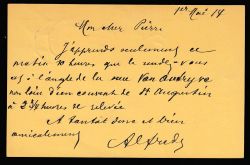 1er Mai 14
Mon cher Pierre
J'apprends seulement ce
matin 10 heures que le rendez-vous
est à l'angle de la rue Van
non loin d'un couvent de St Augustin
à 2 3/4 heures de relevée
A tantôt donc et bien
amicalement
Alfred